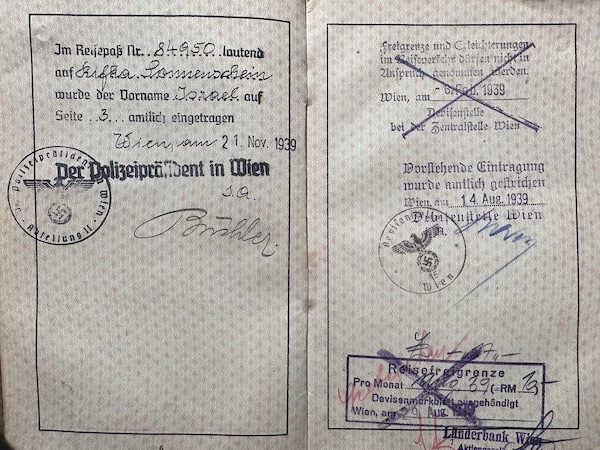 Im Reisepaß Nr. 84950. lautend
auf Rifka Sonnenschein
wurde der Vorname Israel auf
Seite ..3... amtlich eingetragen
Wien, am 21. Nov. 1939
Der Polizeipräsident in Wien
I.A.
Büchler
Polizeipräsident Wien
Abteilung II
6
Freigrenze und Erleichterungen
im Reiseverkehr dürfen nicht in
Anspruch genommen werden.
Wien, am - 6. Feb. 1939
Devisenstelle
bei der Zentralstelle Wien
Vorstehende Eintragung
wurde amtlich gestrichen
Wien, am 14. Aug. 1939
Devisenstelle Wien
Devisenstelle
Wien
Reisefreigrenze
Pro Monat 39 ( RM 10,-
Devisenmerkblatt ausgehändigt
Wien, am Aug. 1939
Länderbank Wien
Aktiengesell